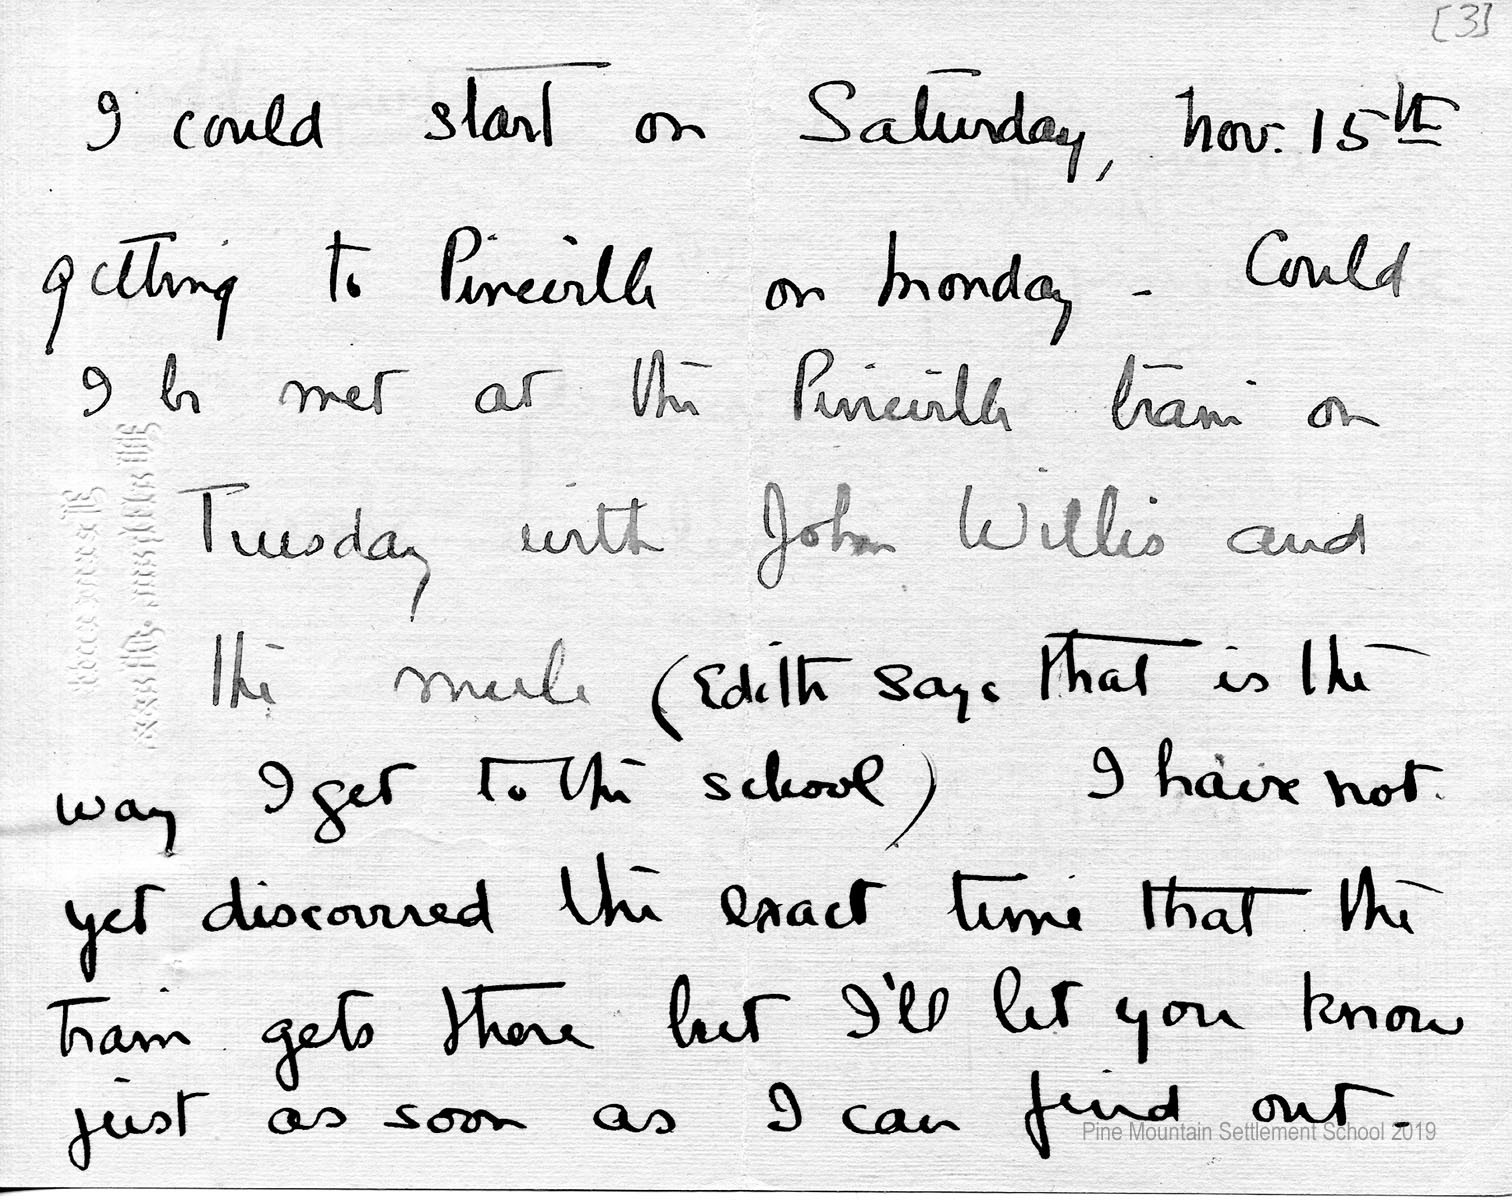 [3]
I could start on Saturday, Nov. 15th
getting to Pineville on Monday - Could
I be met at the Pineville train on
Tuesday with John Willis and
the mule (Edith says that is the
way I get to the school) I have not
yet discovered the exact time that the
train gets there but I'll let you know
just as soon as I can find out.
Pine Mountain Settlement School 2019